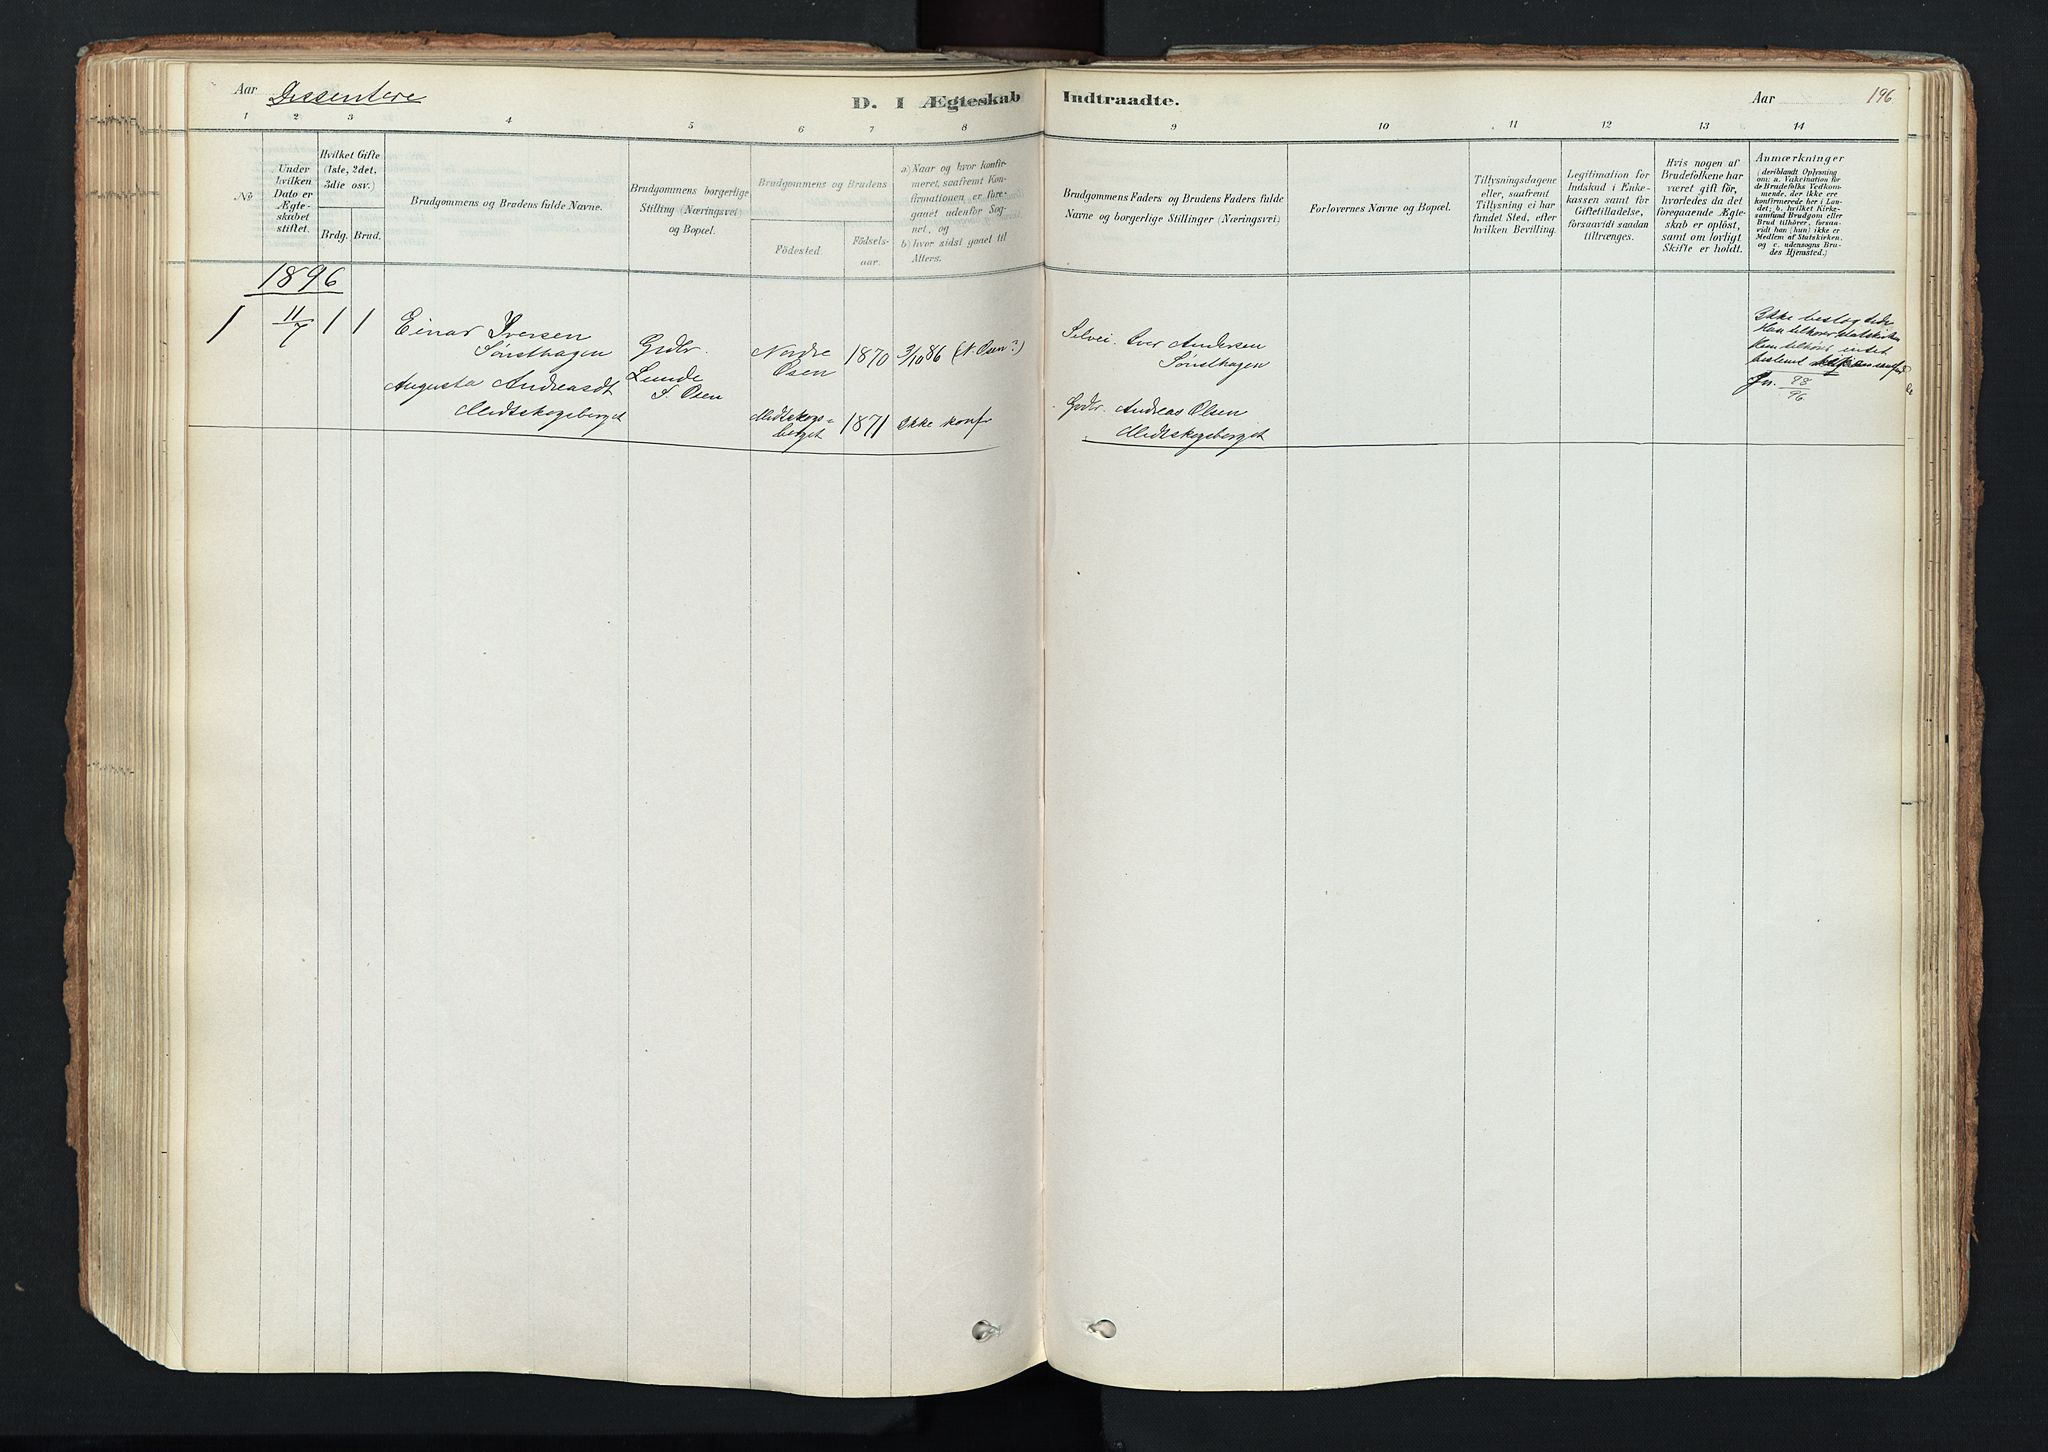 Aar
Dissentere
D. I Ægteskab
Indtraadte.
Aar
196
1
2
3
4
5
6
7
8
9
10
11
12
13
14
No
Under
hvilken
Dato er
Ægte-
skabet
stiftet.
Hvilket Gifte
(1ste, 2det,
3die osv.)
Brdg.
Brud.
Brudgommens og Brudens fulde Navne.
Brudgommens borgerlige
Stilling (Næringsvei)
og Bopæl.
Brudgommens og Brudens
Födested.
Födsels-
aar.
a) Naar og hvor konfir-
meret, saafremt Kon-
firmationen er fore-
gaaet udenfor Sog-
net, og
b) hvor sidst gaaet til
Alters.
Brudgommens Faders og Brudens Faders fulde
Navne og borgerlige Stillinger (Næringsvei)
Forlovernes Navne og Bopæl.
Tillysningsdagene
eller, saafremt
Tillysning ei har
fundet Sted, efter
hvilken Bevilling.
Legitimation for
Indskud i Enke-
kassen samt for
Giftetilladelse,
forsaavidt saadan
tiltrænges.
Hvis nogen af
Brudefolkene har
været gift för,
hvorledes da det
foregaaende Ægte-
skab er oplöst,
samt om lovligt
Skifte er holdt.
Anmærkninger
(deriblandt Oplysning
om: a. Vakcination for
de Brudefolks Vedkom-
mende, der ikke ere
konfirmerede her i Lan-
det; b. hvilket Kirke-
samfund Brudgom eller
Brud tilhörer, forsaa-
vidt han (hun) ikke er
Medlem af Statskirken,
og c. udensogns Bru-
des Hjemsted.)
1896
1
11/7
1
1
Einar Iversen
Sønsthagen
Augusta Andreasdt
Midtskogsberget
Grdbr.
Lunde
S. Osen
Nordre
Osen
1870
3/10 86 (N. Osen?)
Midtskogs-
berget
1871
Ikke konf
Selvei. Iver Andersen
Sønsthagen
Grdbr. Andreas Olsen
Midtskogsberget
Ikke beslægtede
Han tilhører Statskirken
Hun tilhører intet
bestemt
Jn. 93/96